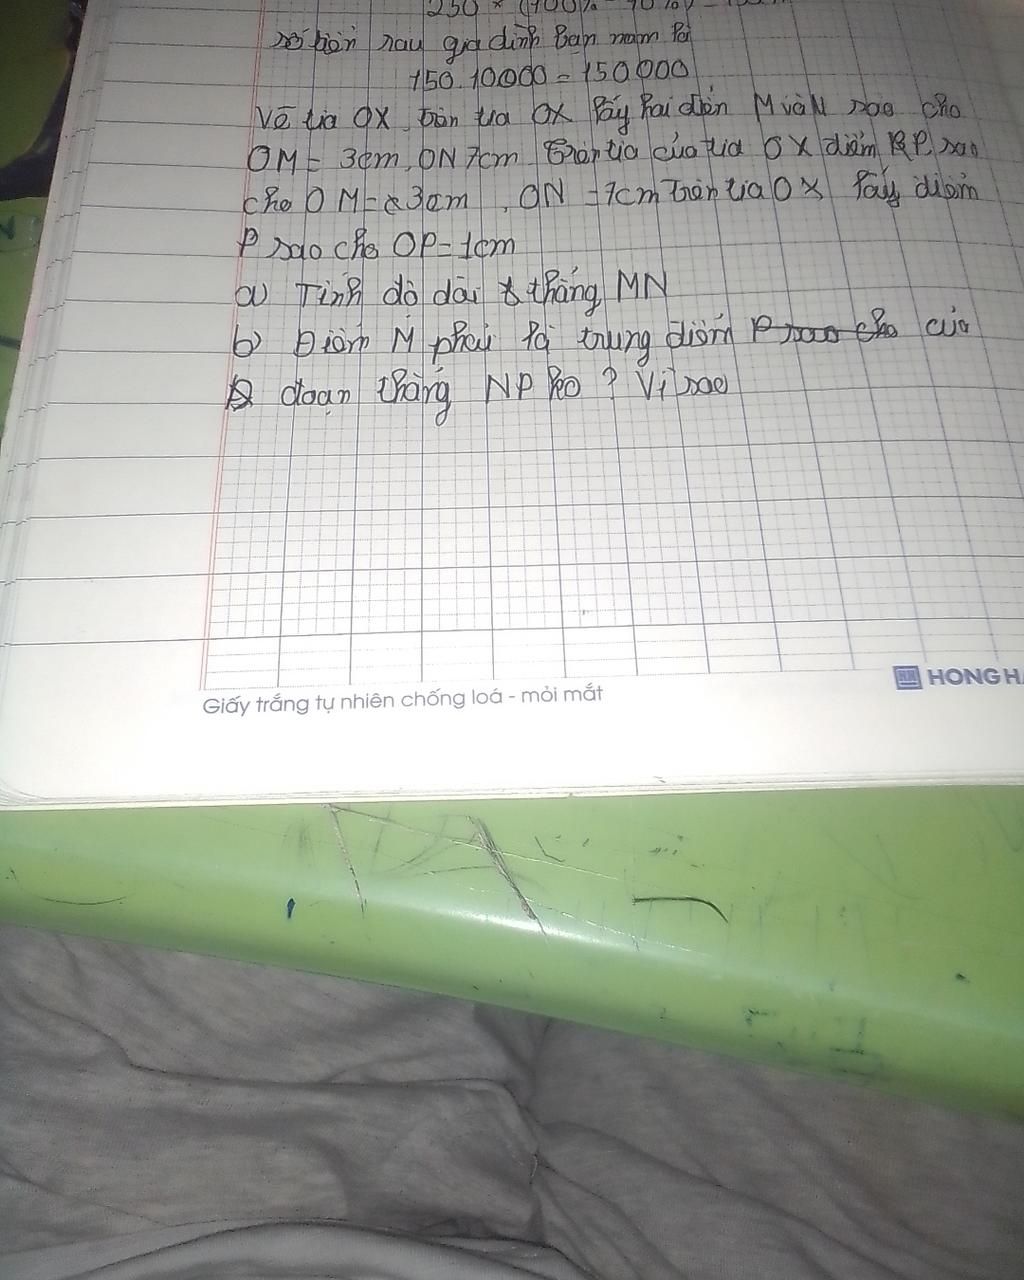 250 × (100% - 40%) =
số tiền rau gia đình bạn nam là
150.10000 = 150000
Vẽ tia OX, trên tia OX lấy hai điểm M và N sao cho
OM = 3cm, ON 7cm Trên tia của tia OX điểm P sao
cho OM = 3cm, ON = 7cm Trên tia OX lấy điểm
P sao cho OP = 1cm
a) Tính độ dài thẳng MN
b) Điểm M phải là trung điểm P sao cho của
đoạn thẳng NP ko ? Vì sao
Giấy trắng tự nhiên chống loá - mỏi mắt
HONG HA